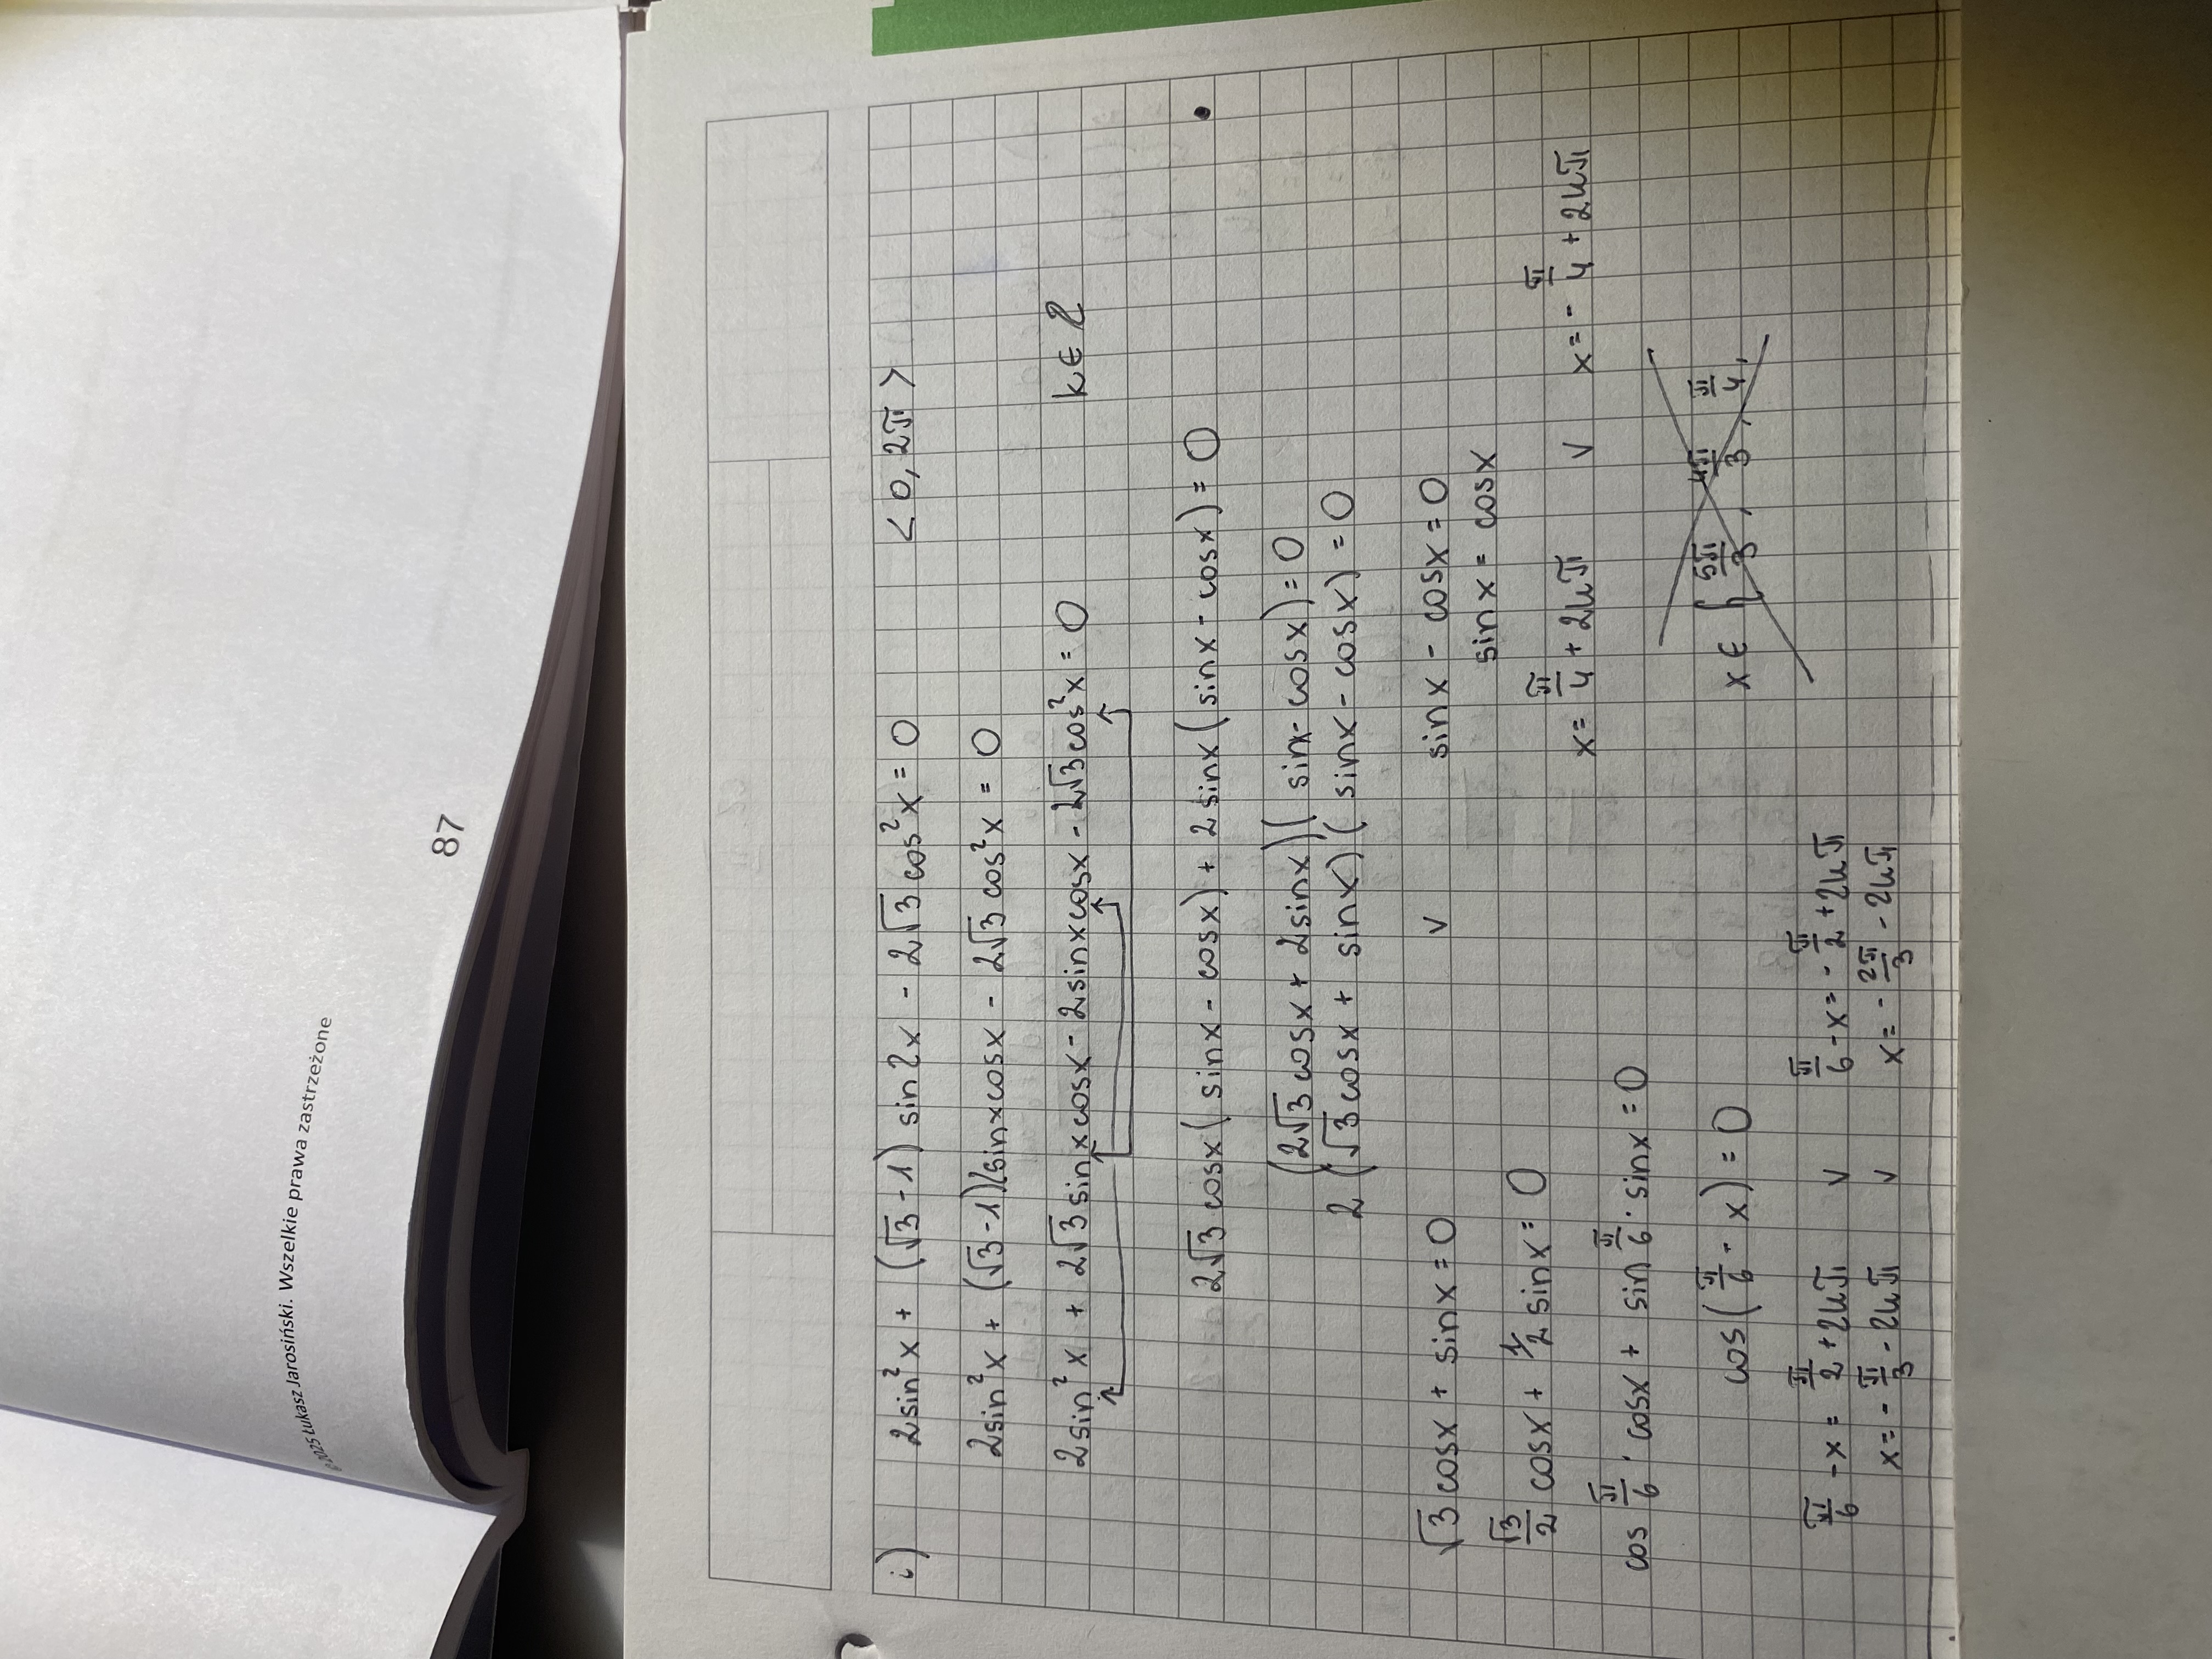 © 2025 Łukasz Jarosiński. Wszelkie prawa zastrzeżone
87
i) 2sin²x + (√3 - 1) sin2x - 2√3 cos²x = 0 <0, 2π>
2sin²x + (√3 - 1)(sinxcosx - 2√3 cos²x = 0
2sin²x + 2√3 sinxcosx - 2sinxcosx - 2√3 cos²x = 0 k ∈ Z
2√3 cosx (sinx - cosx) + 2sinx (sinx - cosx) = 0
(2√3 cosx + 2sinx)(sinx - cosx) = 0
2(√3 cosx + sinx)(sinx - cosx) = 0
√3 cosx + sinx = 0 v sinx - cosx = 0
√3/2 cosx + 1/2 sinx = 0 sinx = cosx
cos π/6 · cosx + sin π/6 · sinx = 0 x = π/4 + 2kπ v x = - π/4 + 2kπ
cos(π/6 - x) = 0 x ∈ { 5π/3, 4π/3, π/4,
π/6 - x = π/2 + 2kπ v π/6 - x = - π/2 + 2kπ
x = - π/3 - 2kπ v x = - 2π/3 - 2kπ